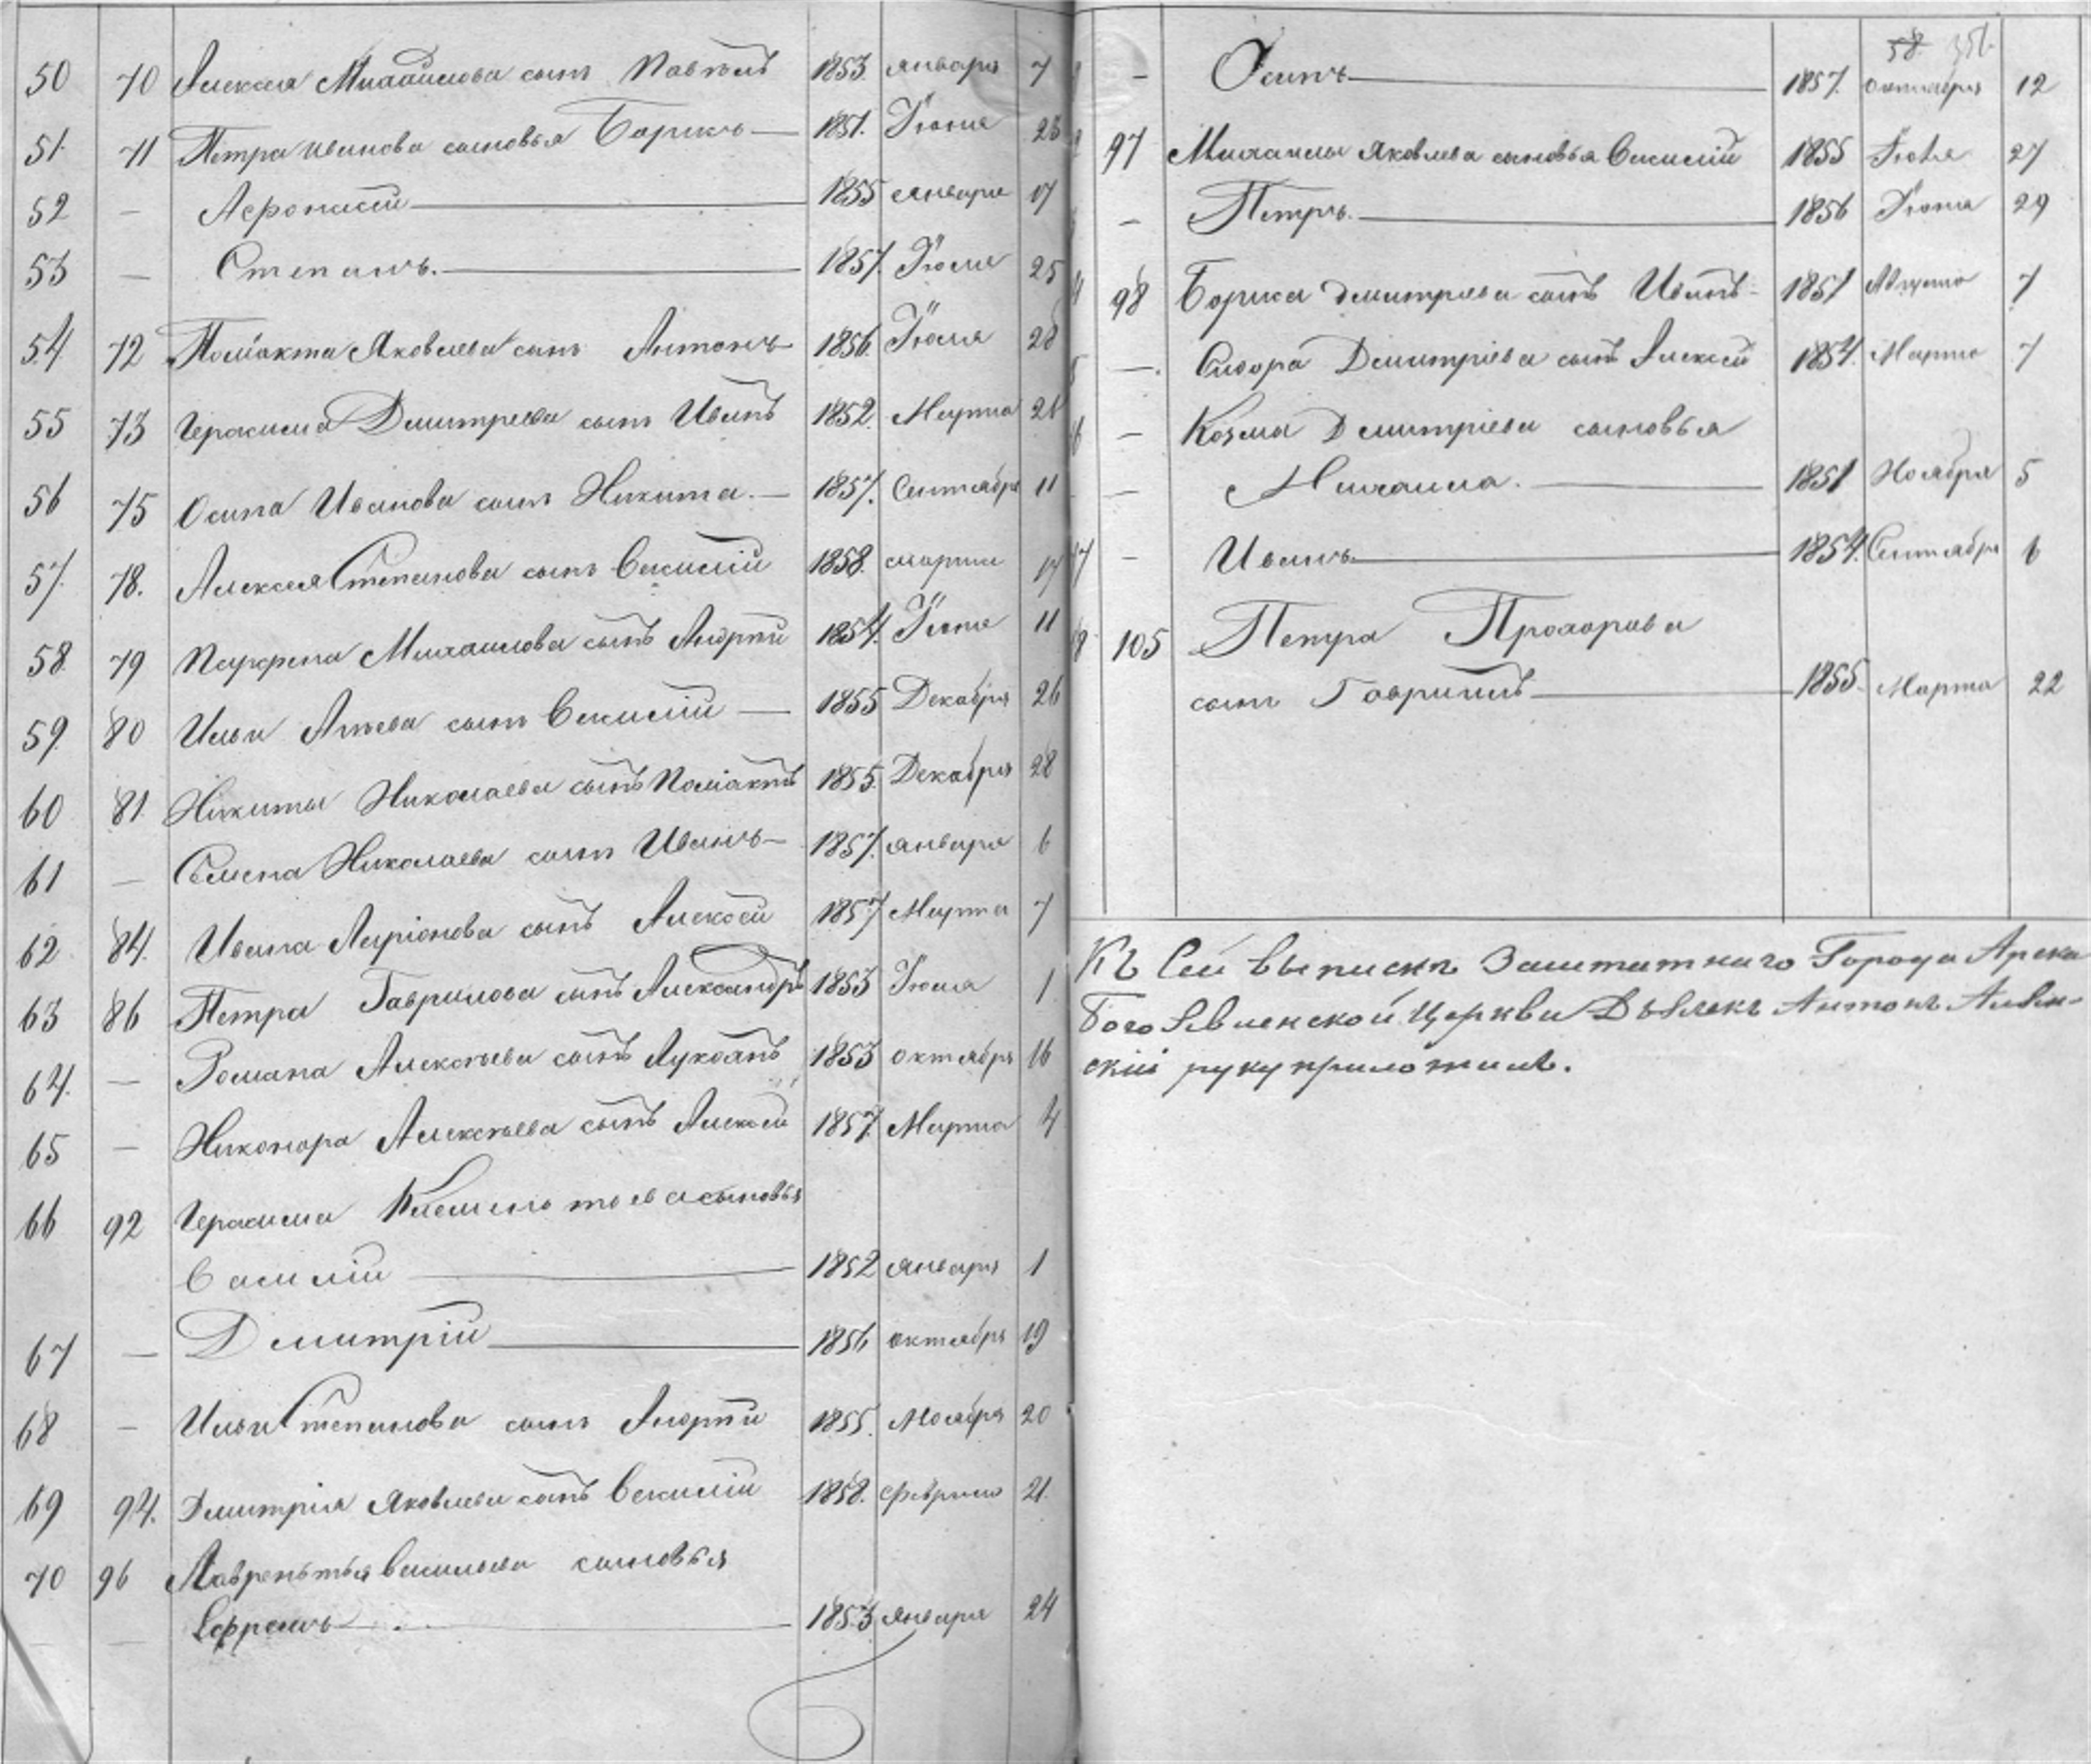 50 70 Алексея Михайлова сынъ Павелъ 1853. января 7
51. 71 Петра Иванова сыновья Борисъ 1851. Іюня 23
52 — Афонасій 1855 января 17
53 — Степанъ. 1857. Іюля 25
54 72 Поліокта Яковлева сынъ Антонъ 1856. Іюля 28
55 73 Герасима Дмитрева сынъ Иванъ 1852. Марта
56 75 Осипа Иванова сынъ Никита. 1857. Сентября 11
57. 78. Алексея Степанова сынъ Василій 1858. марта 17
58 79 Парфена Михаилова сынъ Андрей 1854. Іюня 11
59. 80 Ильи сынъ Василій 1855 Декабря 26
60 81. Никиты Николаева сынъ Поліактъ 1855. Декабря 28
61 — Семена Николаева сынъ Иванъ 1857. января 6
62 84. Ивана Ларіонова сынъ Алексей 1857 Марта 7
63 86 Петра Гаврилова сынъ Александръ 1853 Іюля 1
64. — Романа Алексеева сынъ Лукоянъ 1853 октября 16
65 — Никонора Алексеева сынъ Алексей 1857. Марта 4
66 92 Герасима сыновья
Василій 1852 января 1
67 — Дмитрій 1856 октября 19
68 — Ильи Степанова сынъ Андрей 1855. Ноября 20
69 94. Дмитрія Яковлева сынъ Василій 1858. февраля 21.
70 96 Лаврентья Василева сыновья
Ефремъ 1853 января 24
58
— Осипъ 1857. октября 12
97 Михаилы Яковлева сыновья Василій 1855 27
— Петръ. 1856 Іюня 29
98 Бориса Дмитрева сынъ Иванъ 1857 Августа 7
—. Сидора Дмитріева сынъ Алексей 1854. Марта 7
— Козмы Дмитріева сыновья
— Михаила. 1851 Ноября 5
— Иванъ 1854. Сентября 6
105 Петра Прохорова
сынъ Гаврилъ 1855. Марта 22
Къ Сей выписке Заштатнаго Города Арска
Богоявленской Церкви Дьячекъ Антонъ
скій руку приложилъ.